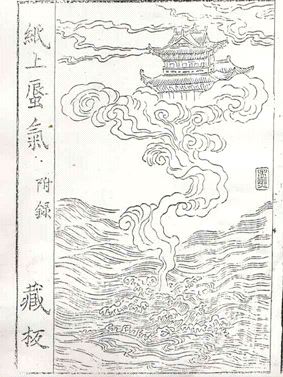 紙上蜃氣 附錄 藏板